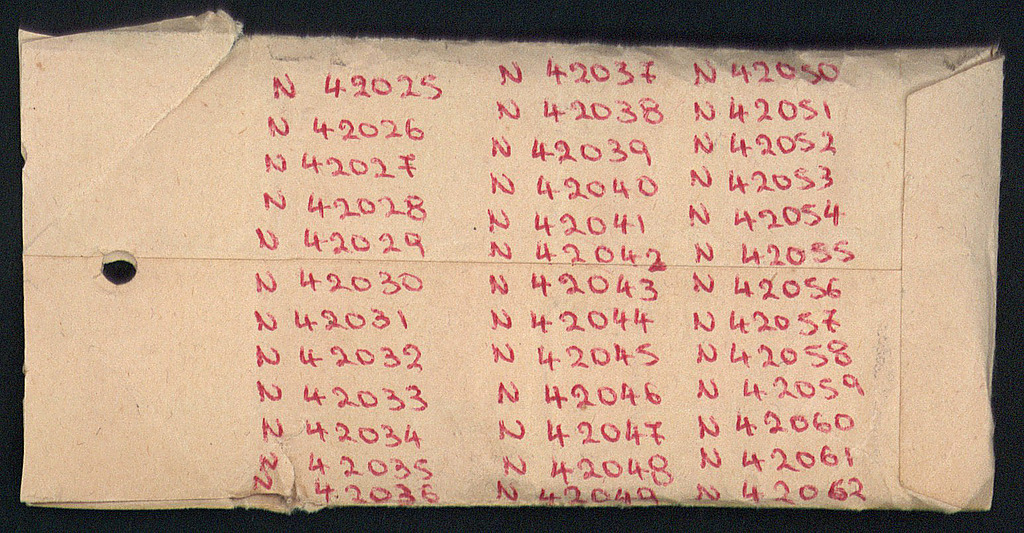 N 42025
N 42026
N 42027
N 42028
N 42029
N 42030
N 42031
N 42032
N 42033
N 42034
N 42035
N 42036
N 42037
N 42038
N 42039
N 42040
N 42041
N 42042
N 42043
N 42044
N 42045
N 42046
N 42047
N 42048
N 42049
N 42050
N 42051
N 42052
N 42053
N 42054
N 42055
N 42056
N 42057
N 42058
N 42059
N 42060
N 42061
N 42062